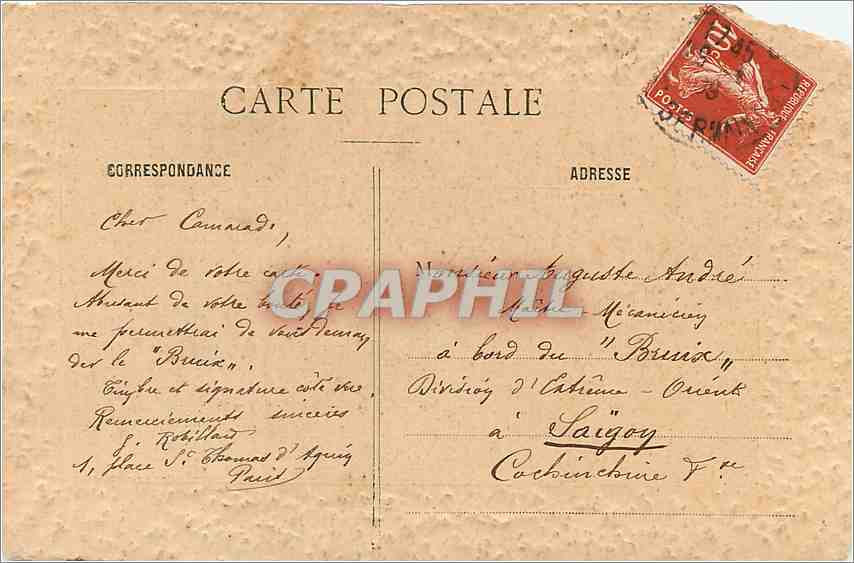 CARTE POSTALE
CORRESPONDANCE
Cher Camarade,
Merci de votre carte.
Abusant de votre bonté, je
me permettrai de vous deman
der le "Bruix".
Timbre et signature côté vue.
Remerciements sincères
J. Robillard
1, place St Thomas d'Aquin
Paris
ADRESSE
Monsieur Auguste André
Maître Mécanicien
à bord du "Bruix"
Division d'Extrême-Orient
à Saïgon
Cochinchine Fse
10c
POSTES
REPUBLIQUE FRANÇAISE
CPAPHIL